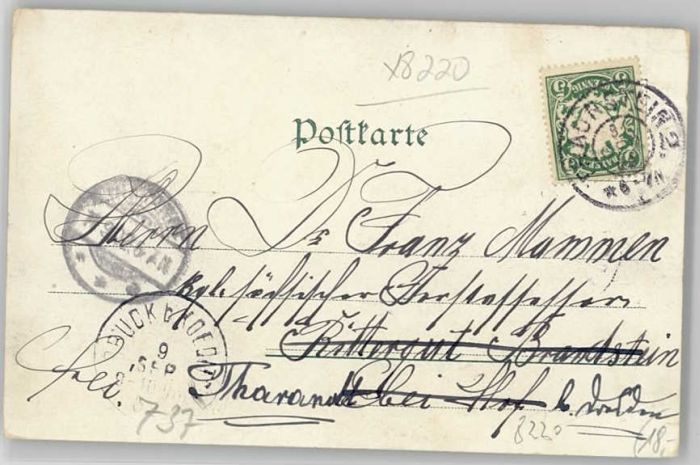 x8220
Postkarte
Herrn Dr Franz Mammen
kgl. sächsischer Forstassessor
Rittergut Brandstein
frei. Tharandt bei Hof b. Dresden
BUCKAHOF
9
SEP
5737
8220
18,-